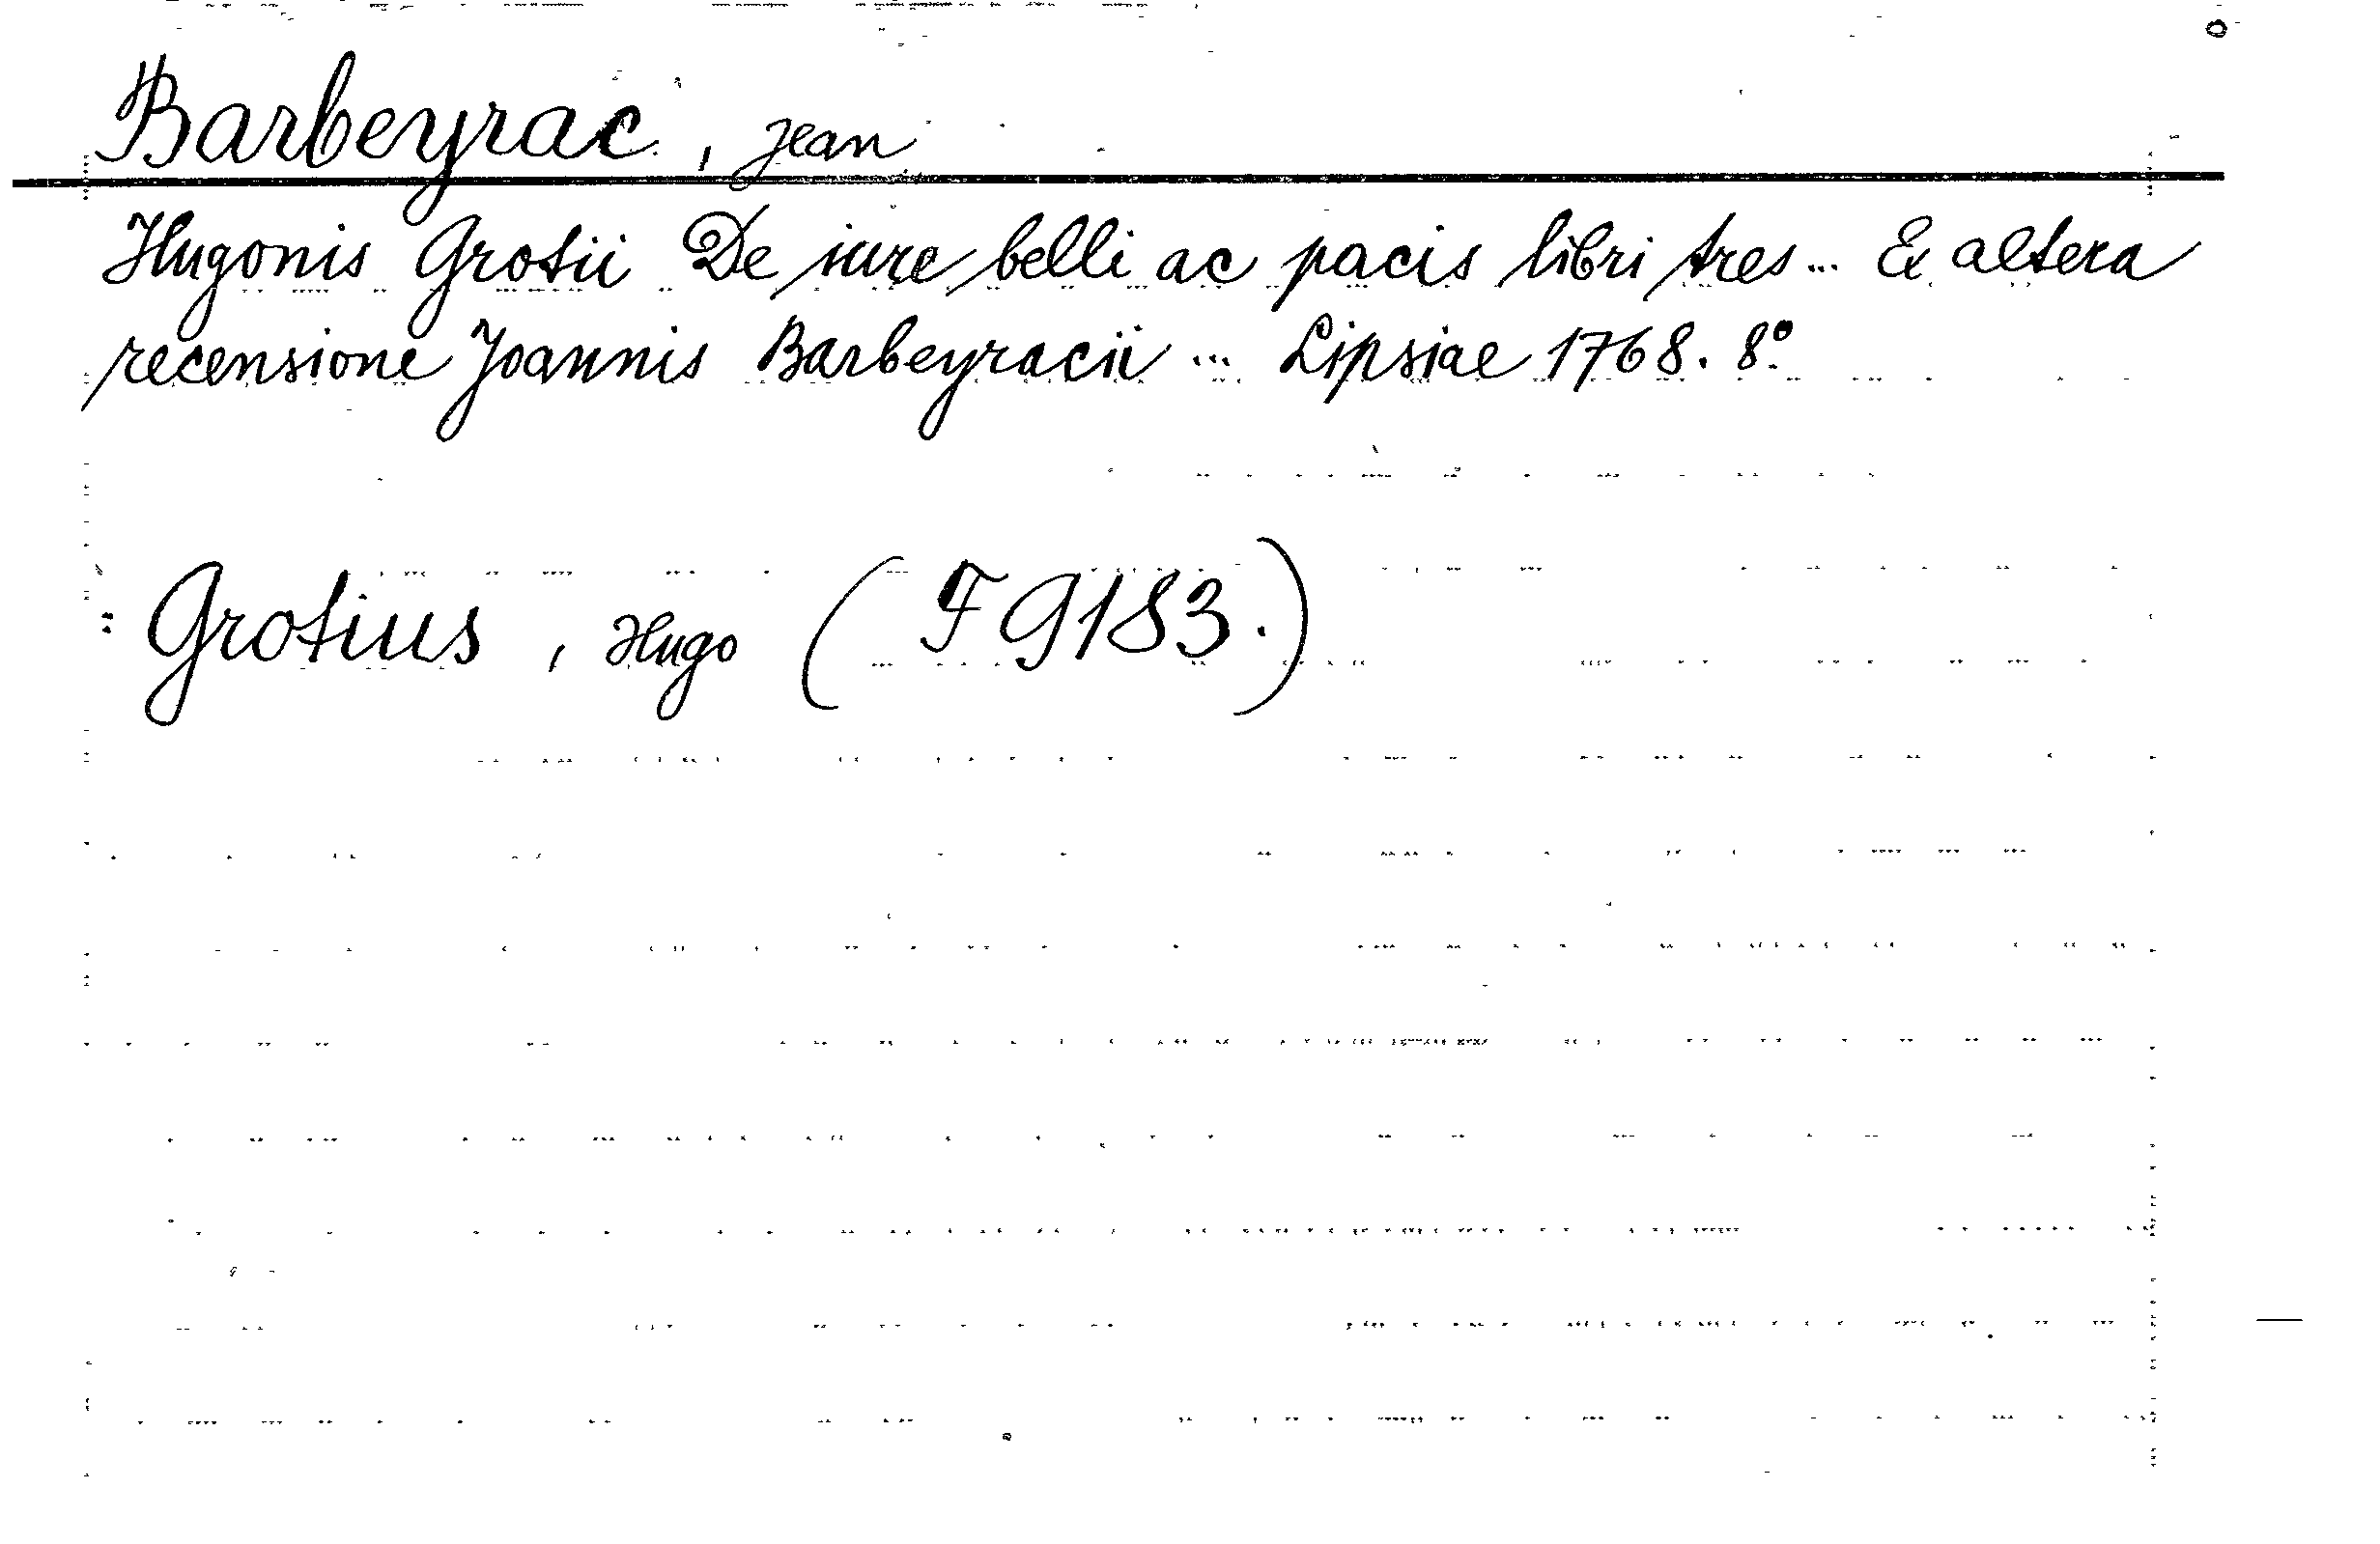 Barbeyrac, Jean
Hugonis Grotii De iure belli ac pacis libri tres ... Ex altera
recensione Joannis Barbeyracii ... Lipsiae 1768. 8º
: Grotius, Hugo (F 9183.)